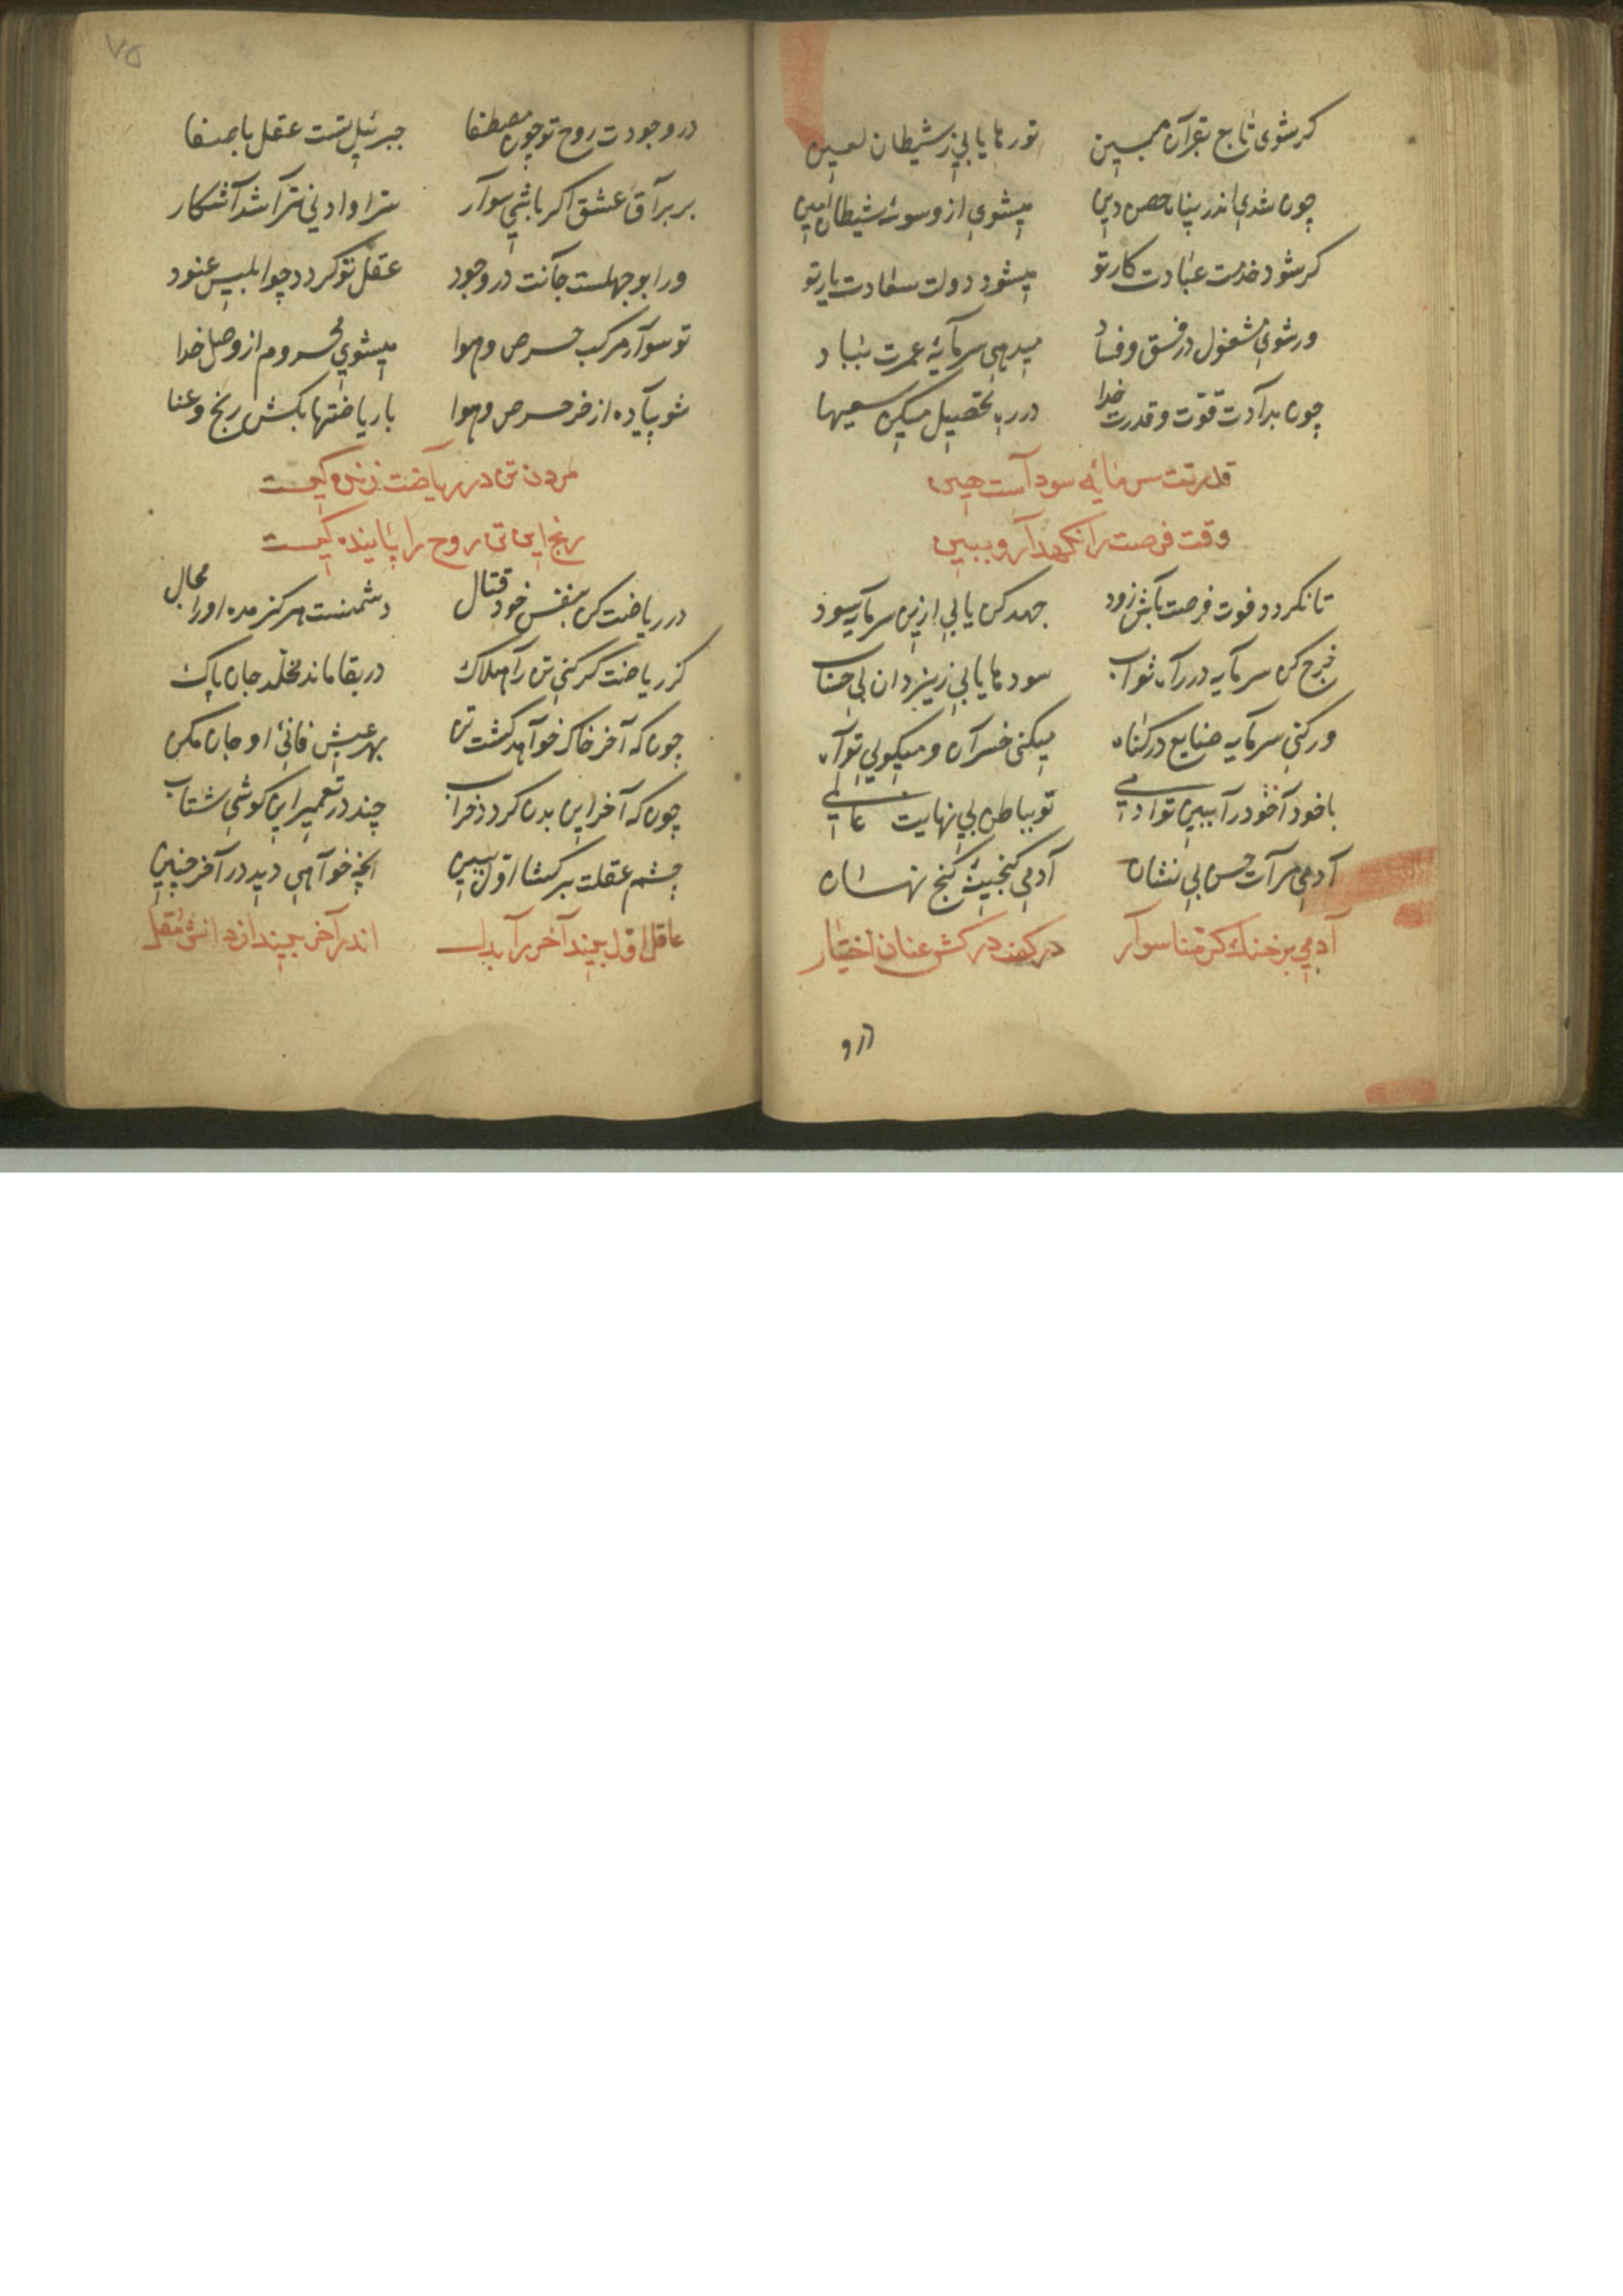 کرشوی تابع بقرآن مبین تو رها یابی ز شیطان لعین
چون شدی اندر پناه حصن دین میشوی از وسوسهٔ شیطان امین
کر شود خدمت عبادت کار تو میشود دولت سعادت یار تو
ور شوی مشغول در فسق و فساد میدهی سرمایهٔ عمرت بباد
چون بدادت قوّت و قدرت خدا در ره تحصیل میکن سعیها
قدرتت سرمایهٔ سود است هین
وقت فرصت را نکهدار و ببین
تا نکردد فوت فرصت باش زود جهد کن یابی ازین سرمایه سود
خرج کن سرمایه در راه ثواب سودها یابی ز یزدان بی حساب
ور کنی سرمایه ضایع در کناه میکنی خسران و میکویی تو آه
با خود آ خود را ببین تو آدمی تو بباطن بی نهایت عالمی
آدمی مرآت حسن بی نشان آدمی کنجینهٔ کنج نهان
آدمی بر خنک کرمنا سوار در کف درکش عنان اختیار
در و
۷۵
در وجودت روح تو چون مصطفا جبرئیل تست عقل باصفا
بر براق عشق اکر باشی سوار سرّ او ادنی ترا شد آشکار
ور ابوجهلست جانت در وجود عقل تو کردد چو ابلیس عنود
تو سوار مرکب حرص و هوا میشوی محروم از وصل خدا
شو پیاده از خر حرص و هوا با ریاضتها بکش رنج و عنا
مردن تن در ریاضت زندکیست
رنج این تن روح را پایندکیست
در ریاضت کن بنفس خود قتال دشمنست هرکز مده او را مجال
کز ریاضت کر کنی تن را هلاک در بقا ماند مخلّد جان پاک
چون که آخر خاک خواهد کشت تن بهر عیش فانئ او جان مکن
چون که آخر این بدن کردد خراب چند در تعمیر این کوشی شتاب
چشم عقلت برکشا اوّل ببین آنچه خواهی دید در آخر چنین
عاقل اوّل بیند آخر را بدل اندر آخر بیند از دانش مقل